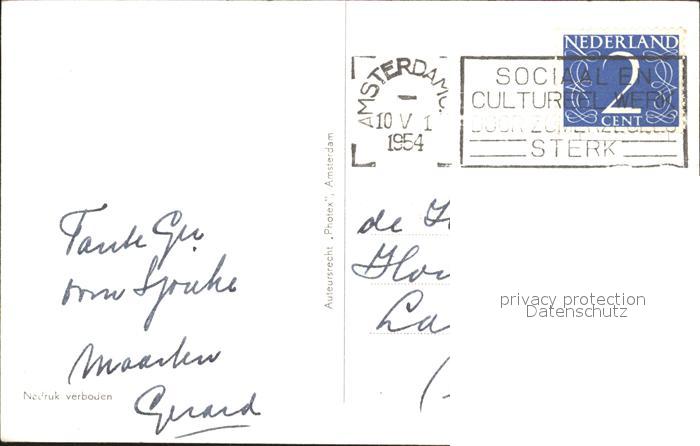 NEDERLAND
2
CENT
AMSTERDAM C.
10 V 1
1954
SOCIAAL EN
CULTUREEL WERK
DOOR ZOMERZEGELS
STERK
Tante Geu
oom Sjouke
Maarten
Gerard
Nadruk verboden
Auteursrecht „Photex", Amsterdam
de
privacy protection
Datenschutz